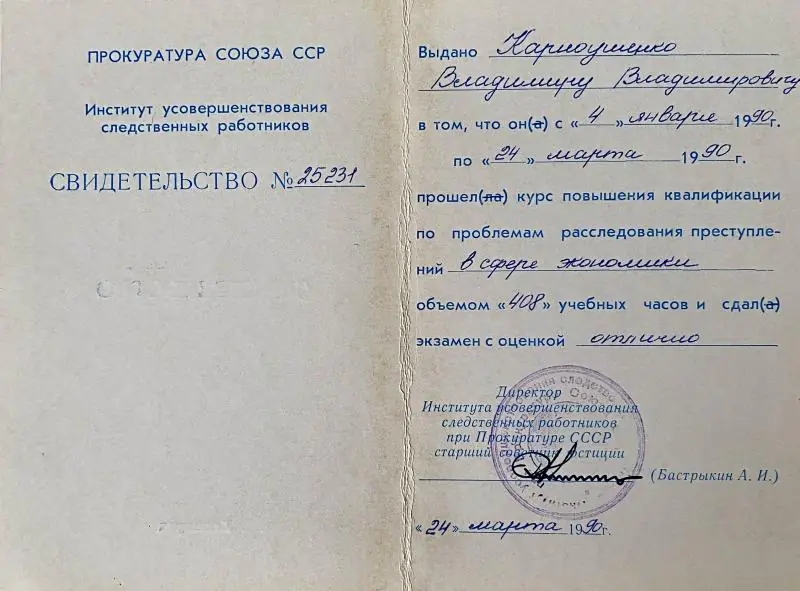 ПРОКУРАТУРА СОЮЗА ССР
Институт усовершенствования
следственных работников
СВИДЕТЕЛЬСТВО № 25231
Выдано Карноушенко
Владимиру Владимировичу
в том, что он(а) с «4» января 1990г.
по «24» марта 1990г.
прошел(ла) курс повышения квалификации
по проблемам расследования преступле-
ний в сфере экономики
объемом «408» учебных часов и сдал(а)
экзамен с оценкой отлично
Директор
Института усовершенствования
следственных работников
при Прокуратуре СССР
старший советник юстиции
(Бастрыкин А. И.)
«24» марта 1990г.